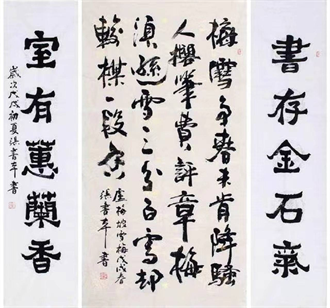 書存金石氣
梅雪爭春未肯降騷
人擱筆費評章梅
須遜雪三分白雪却
輸楳一段香
盧梅坡雪梅戊戌春
張書
書
室有蕙蘭香
歲次戊戌初夏張書
書